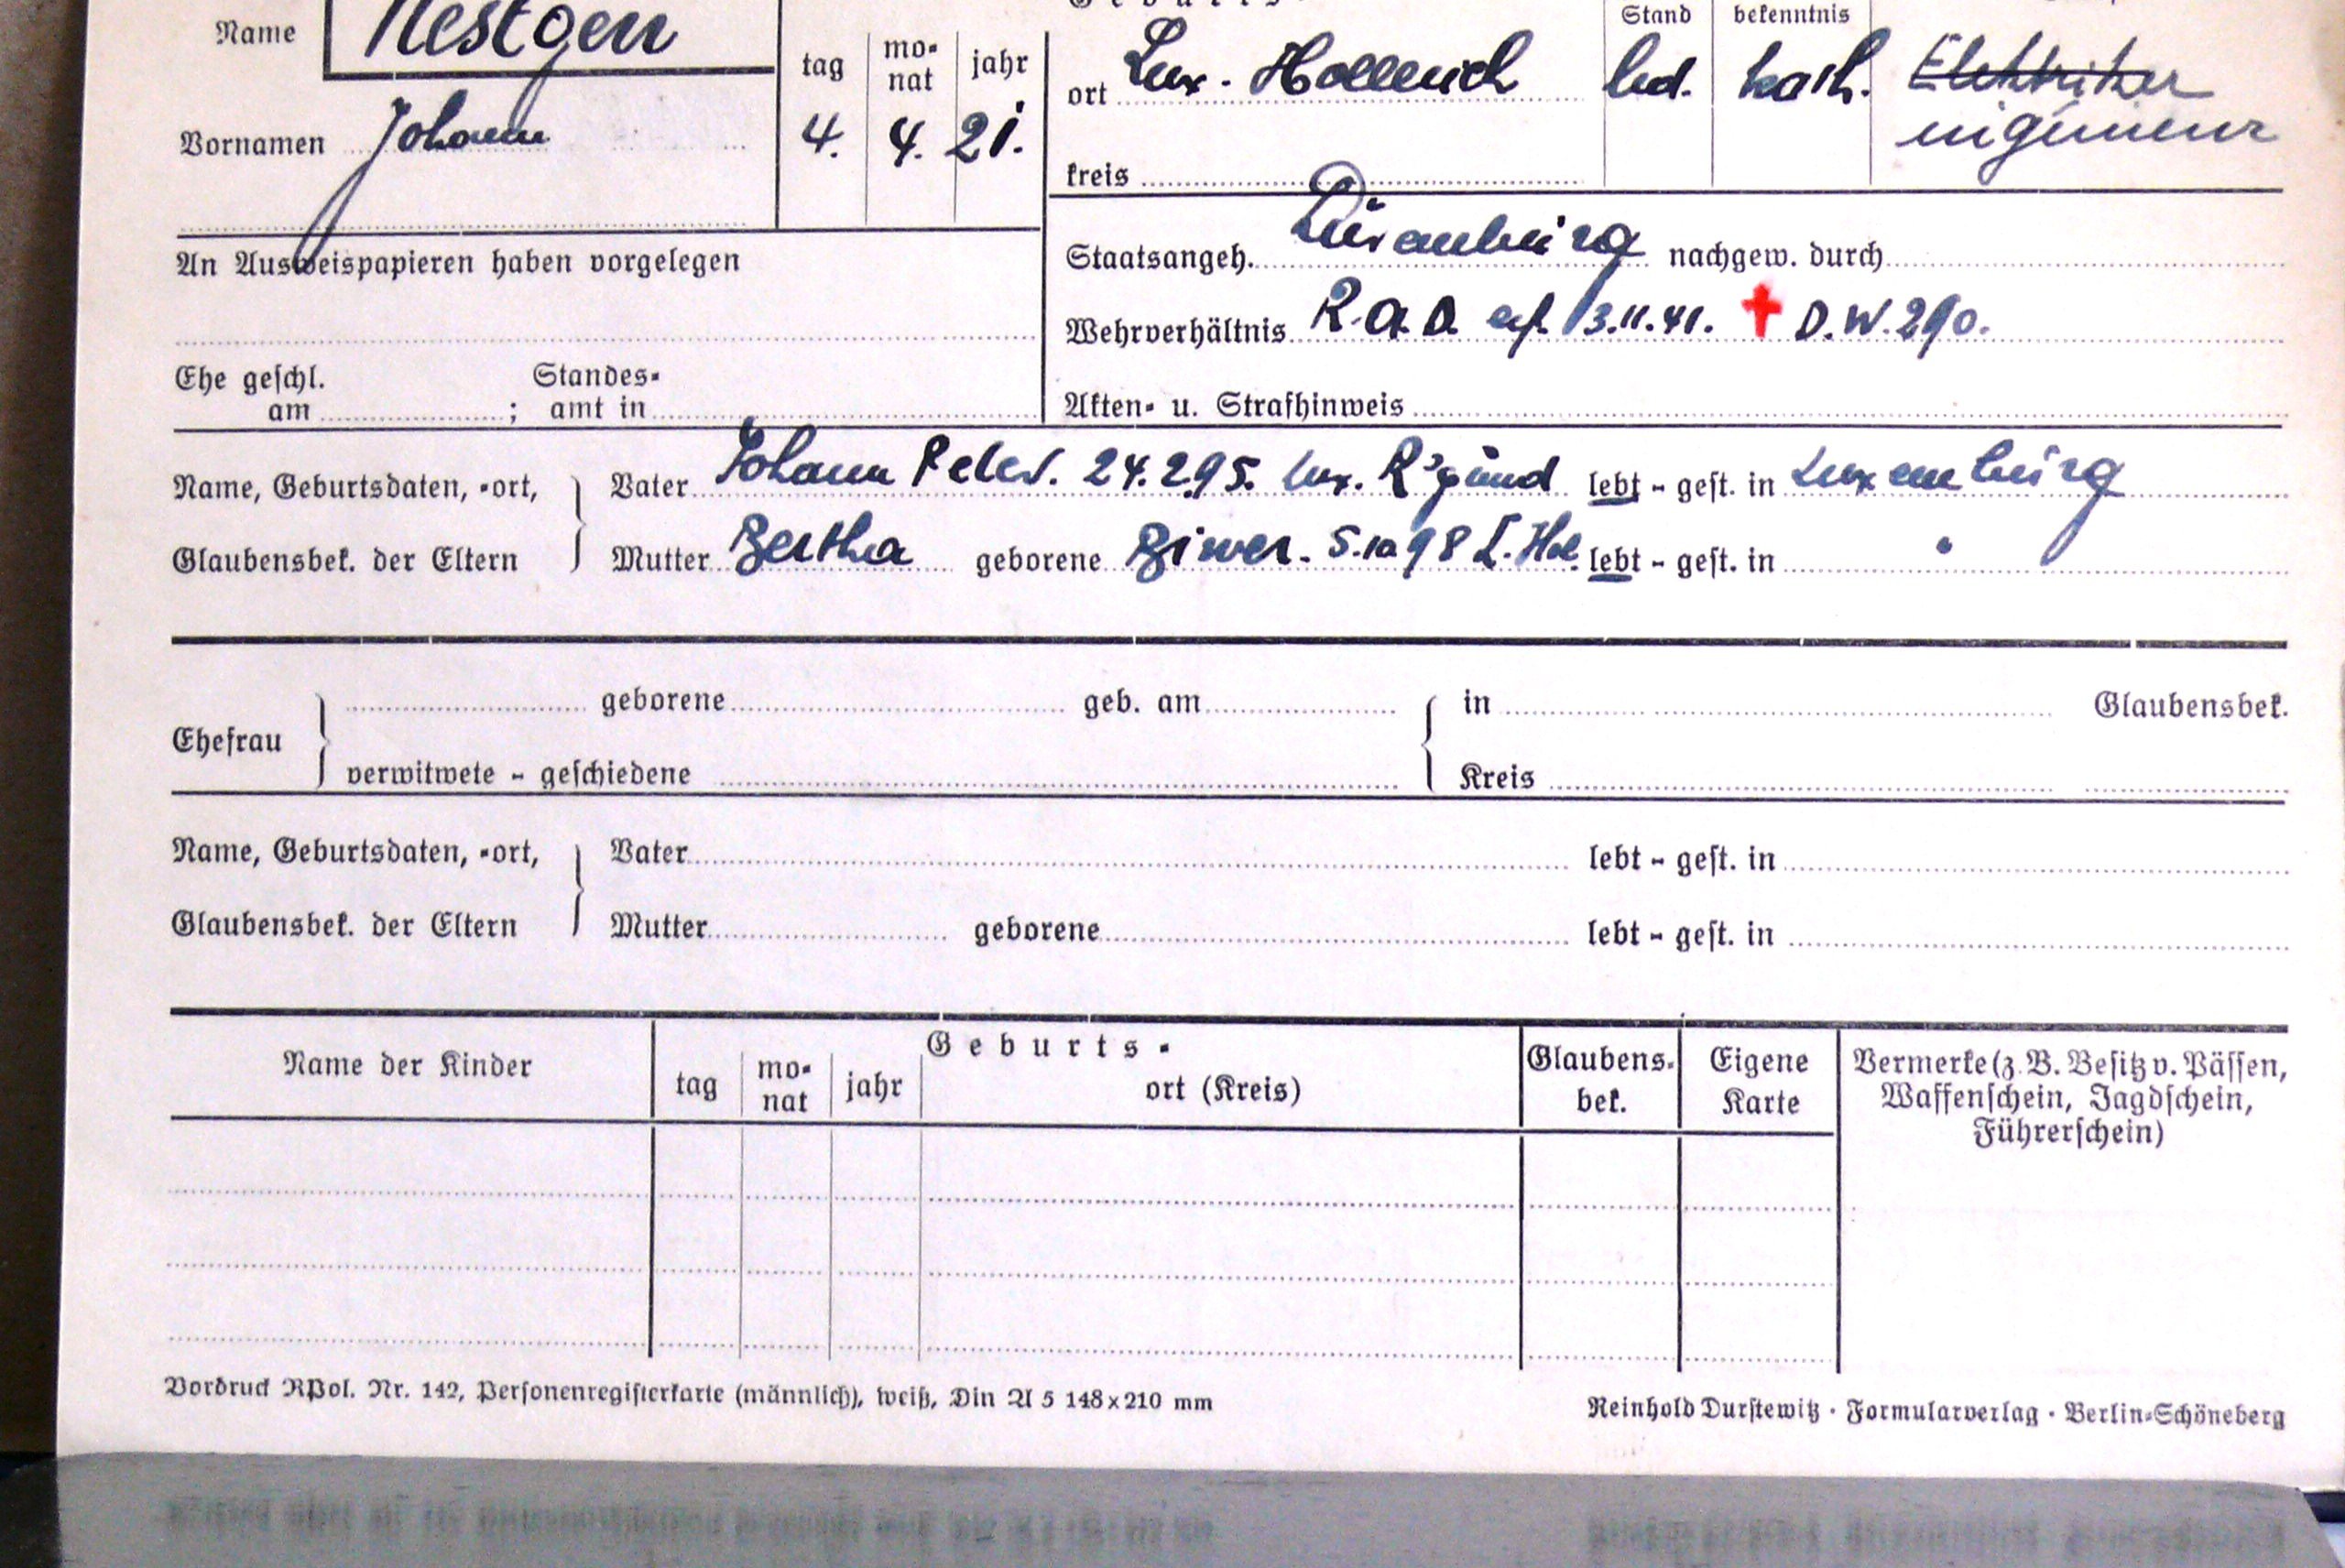 Name Nestgen
Geburts-
Stand bekenntnis
tag monat jahr
ort Lux. Hollerich led. kath. Elektriker
Vornamen Johann 4. 4. 21. ingenieur
kreis
An Ausweispapieren haben vorgelegen
Staatsangeh. Luxemburg nachgew. durch
Wehrverhältnis R.A.D. erf. 13.11.41. † D.W.290.
Ehe geschl. am ; Standesamt in
Akten- u. Strafhinweis
Name, Geburtsdaten, -ort, Vater Johann Peter. 24.2.95. Lux. R'gund lebt - gest. in Luxemburg
Glaubensbek. der Eltern Mutter Bertha geborene Biwer. 5.10 98 L. Hol. lebt - gest. in "
Ehefrau geborene geb. am in Glaubensbek.
verwitwete - geschiedene Kreis
Name, Geburtsdaten, -ort, Vater lebt - gest. in
Glaubensbek. der Eltern Mutter geborene lebt - gest. in
Name der Kinder
Geburts-
tag monat jahr ort (Kreis)
Glaubensbek.
Eigene Karte
Vermerke (z. B. Besitz v. Pässen,
Waffenschein, Jagdschein,
Führerschein)
Vordruck RPol. Nr. 142, Personenregisterkarte (männlich), weiß, Din A 5 148×210 mm
Reinhold Durstewitz · Formularverlag · Berlin-Schöneberg